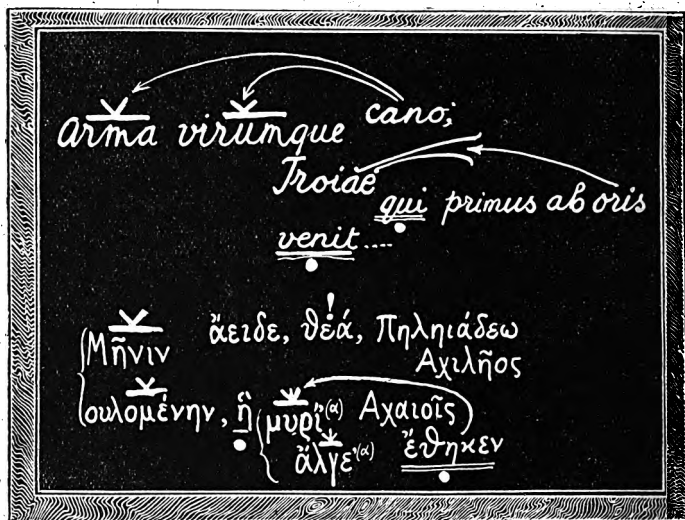 Arma virumque cano;
Troiae
qui primus ab oris
venit....
Μῆνιν ἄειδε, θεά, Πηληιάδεω
Αχιλῆος
ουλομένην, ἣ μυρί'(α) Αχαιοῖς
ἄλγε'(α) ἔθηκεν